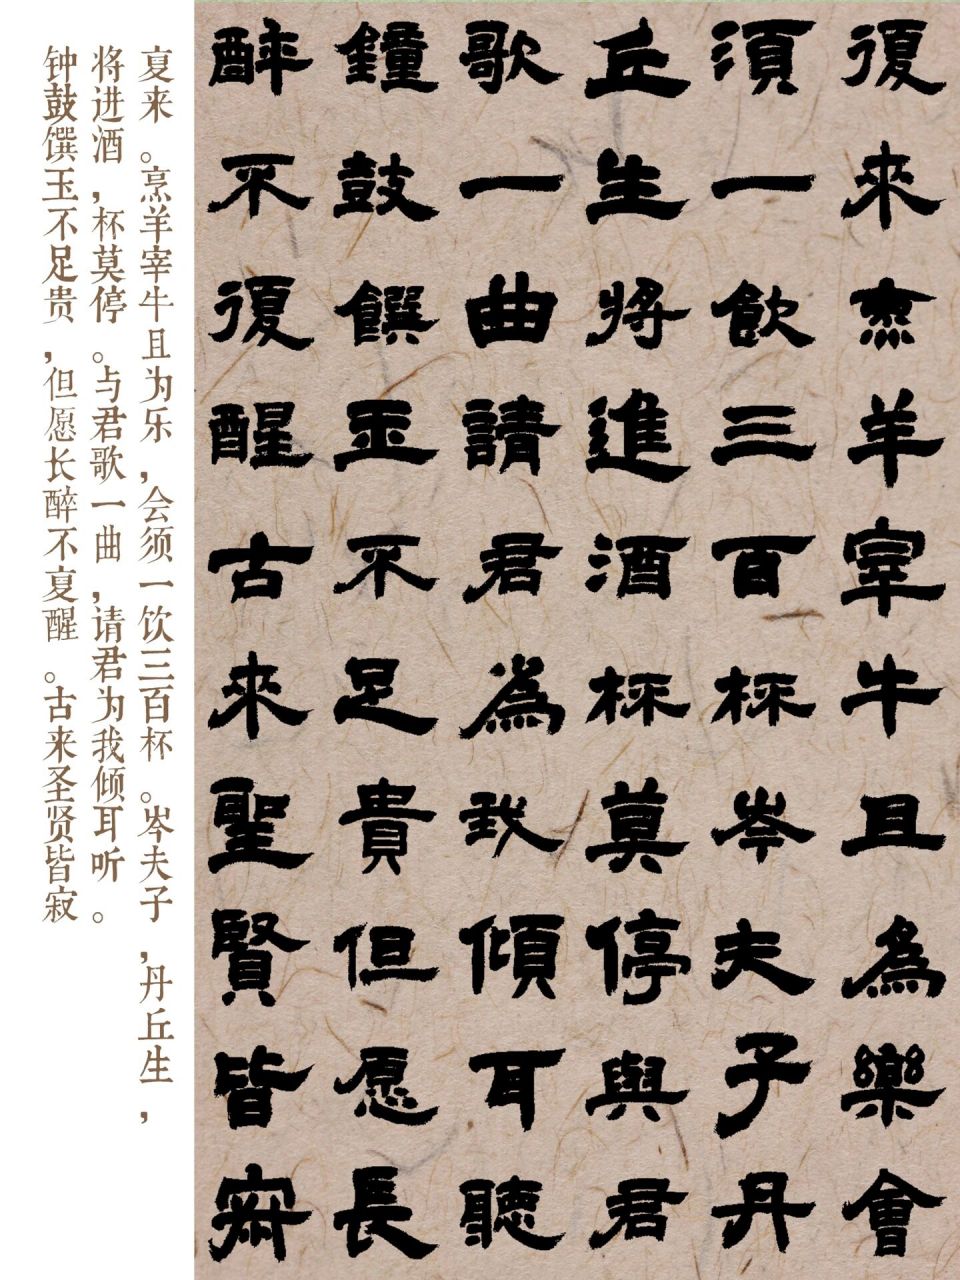 復來烹羊宰牛且為樂會
須一飲三百杯岑夫子丹
丘生將進酒杯莫停與君
歌一曲請君為我傾耳聽
鐘鼓饌玉不足貴但愿長
醉不復醒古來聖賢皆寂
复来。烹羊宰牛且为乐，会须一饮三百杯。岑夫子，丹丘生，
将进酒，杯莫停。与君歌一曲，请君为我倾耳听。
钟鼓馔玉不足贵，但愿长醉不复醒。古来圣贤皆寂